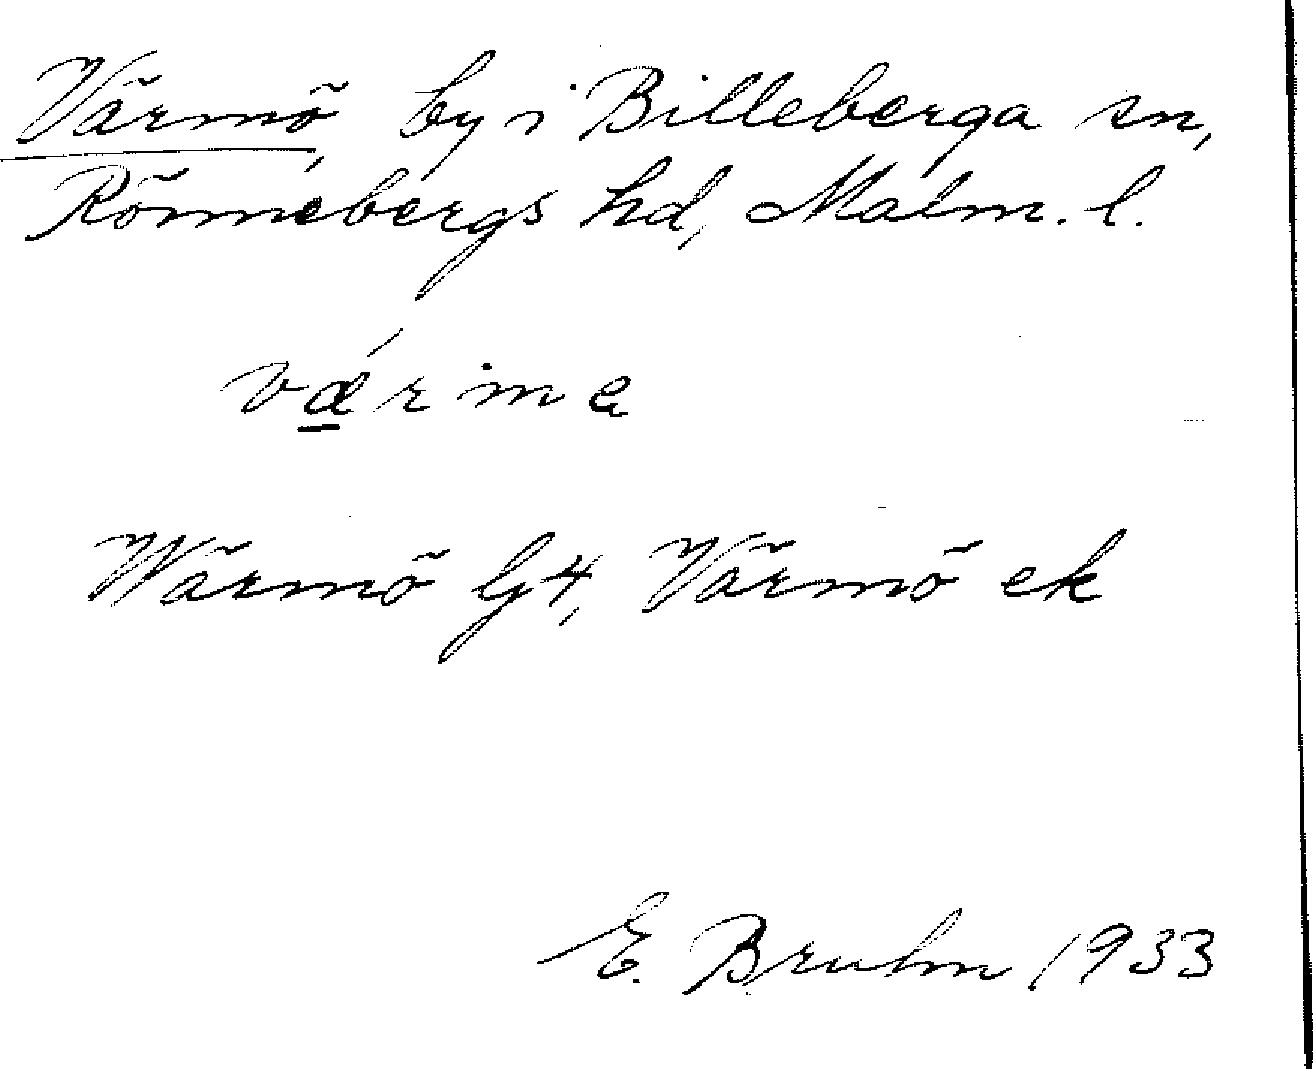 Värmö, by i Billeberga sn,
Rönnebergs hd, Malm. l.
vǽrma
Wärmö G4, Värmö ek
E. Bruhn 1933